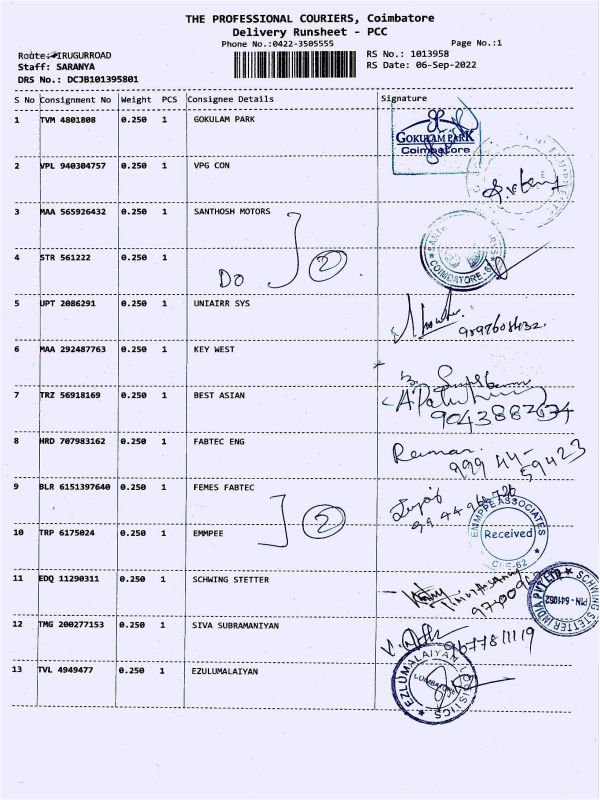 THE PROFESSIONAL COURIERS, Coimbatore
Delivery Runsheet - PCC
Phone No.:0422-3505555
Page No.:1
Route: IRUGURROAD
RS No.: 1013958
Staff: SARANYA
RS Date: 06-Sep-2022
DRS No.: DCJB101395801
S No Consignment No Weight PCS Consignee Details Signature
1 TVM 4801808 0.250 1 GOKULAM PARK
GOKULAM PARK
Coimbatore
2 VPL 940304757 0.250 1 VPG CON
3 MAA 565926432 0.250 1 SANTHOSH MOTORS
4 STR 561222 0.250 1
COIMBATORE-62
DO 2
5 UPT 2086291 0.250 1 UNIAIRR SYS
6 MAA 292487763 0.250 1 KEY WEST
7 TRZ 56918169 0.250 1 BEST ASIAN
8 HRD 707983162 0.250 1 FABTEC ENG
Raman
999 44-59423
9 BLR 6151397640 0.250 1 FEMES FABTEC
2
10 TRP 6175024 0.250 1 EMMPEE
EMMPPE ASSOCIATES
Received
CBE-62
11 EDQ 11290311 0.250 1 SCHWING STETTER
SCHWING STETTER INDIA PVT LTD
PIN - 641062
12 TMG 200277153 0.250 1 SIVA SUBRAMANIYAN
13 TVL 4949477 0.250 1 EZULUMALAIYAN
EZLUMALAIYAN LOGISTICS